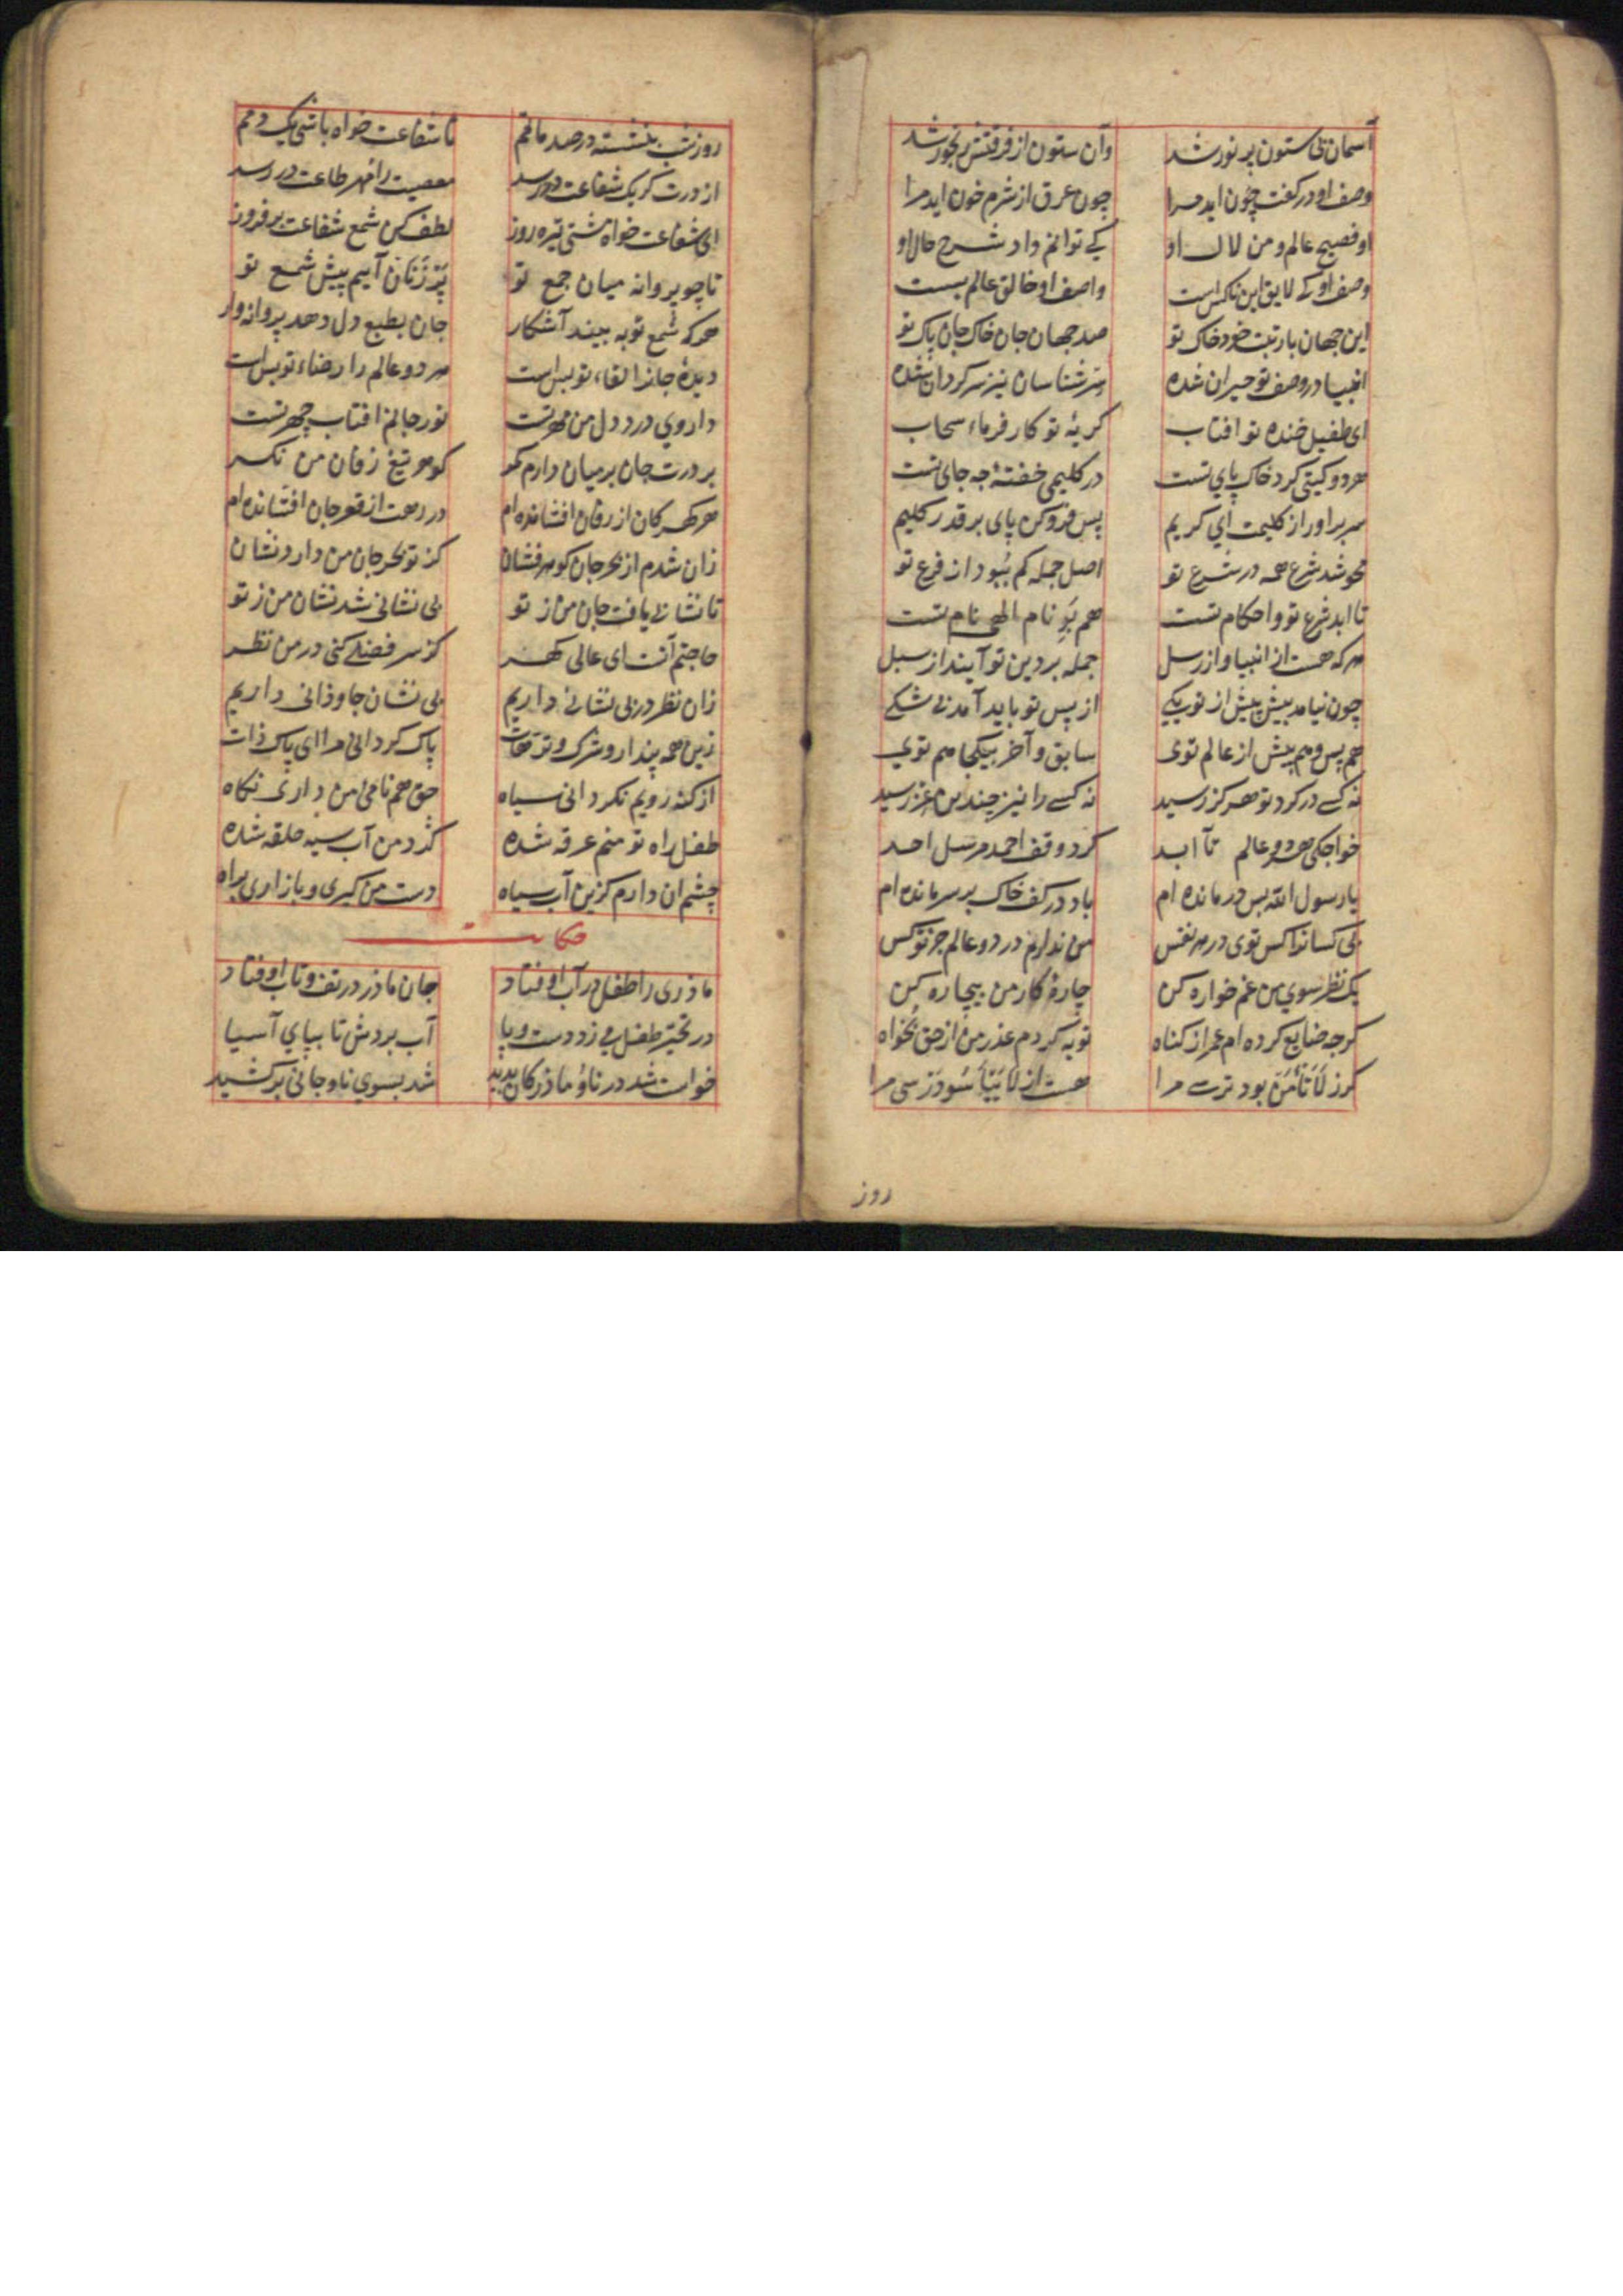 آسمان بی ستون پر نور شد وآن ستون از فرقتش رنجور شد
وصف او در کفت چون اید مرا چون عرق از شرم خون اید مرا
او فصیح عالم و من لال او کے توانم داد شرح حال او
وصف او کے لایق این ناکس است واصف او خالق عالم بست
این جهان با رتبت خود خاک تو صد جهان جان خاک جان پاک تو
انبیا در وصف تو حیران شده سر شناسان نیز سرکردان شده
ای طفیل خنده تو افتاب کریهٔ تو کار فرماء سحاب
هر دو کیتی کرد خاک پاي تست در کلیمی خفتهٔ جه جای تست
سر براور از کلیمت اي کریم پس فرو کن پای بر قدر کلیم
محو شد شرع همه در شرع تو اصل جمله کم ببود از فرع تو
تا ابد شرع تو و احکام تست هم بر نام الهی نام تست
هر که هست از انبیا و از رسل جمله بر دین تو آیند از سبل
چون نیامد بیش پیش از تو یکے از پس تو باید آمد بی شکے
هم پس و هم پیش از عالم توی سابق و آخر بیکجا هم توي
نه کسے در کرد تو هرکز رسید نه کسے را نیز چندین عز رسید
خواجکی هر دو عالم تا ابد کرد وقف احمد مرسل احد
یا رسول الله بس درمانده ام باد در کف خاک بر سر مانده ام
بی کسانرا کس توی در هر نفس من ندارم در دو عالم جز تو کس
یک نظر سوي من غم خواره کن چارهٔ کار من بیچاره کن
کرجه ضایع کرده ام عمر از کناه توبه کردم عذر من از حق بخواه
کرز لا تأمن بود ترسے مرا هست از لا تیأسو درسی مرا
روز
روز و شب بنشسته در صد ماتمم تا شفاعت خواه باشی یک دمم
از درت کر یک شفاعت در رسد معصیت را مهر طاعت در رسد
ای شفاعت خواه مشتی تیره روز لطف کن شمع شفاعت بر فروز
تا چو پروانه میان جمع تو پر زنان آییم پیش شمع تو
هر که شمع تو به بیند آشکار جان بطبع دل دهد پروانه وار
دیدهٔ جانرا لقاء تو بس است هر دو عالم را رضاء تو بس است
داروي درد دل من مهر تست نور جانم افتاب چهر تست
بر درت جان بر میان دارم کمر کوهر تیغ زفان من نکر
هر کهر کان از زفان افشانده ام در رهت از قعر جان افشانده ام
زان شدم از بحر جان کوهر فشان کز تو بحر جان من دارد نشان
تا نشانے یافت جان من ز تو بی نشانی شد نشان من ز تو
حاجتم آنست ای عالی کهر کز سر فضلے کنی در من نظر
زان نظر در بی نشانے داریم بی نشان جاوذانی داریم
زین همه پندار و شرک و ترهات پاک کردانی مرا ای پاک ذات
از کنه رویم نکردانی سیاه حق هم نامی من داری نکاه
طفل راه تو منم غرقه شده کرد من آب سیه حلقه شده
چشم ان دارم کزین آب سیاه دست من کیری و باز اری براه
حکایت
ماذری را طفل در آب اوفتاد جان ماذر در تف و تاب اوفتاد
در تحیر طفل مے زد دست و پا آب بردش تا بپاي آسیا
خواست شد در ناو ماذر کان بدید شد بسوي ناو جانی برکشید